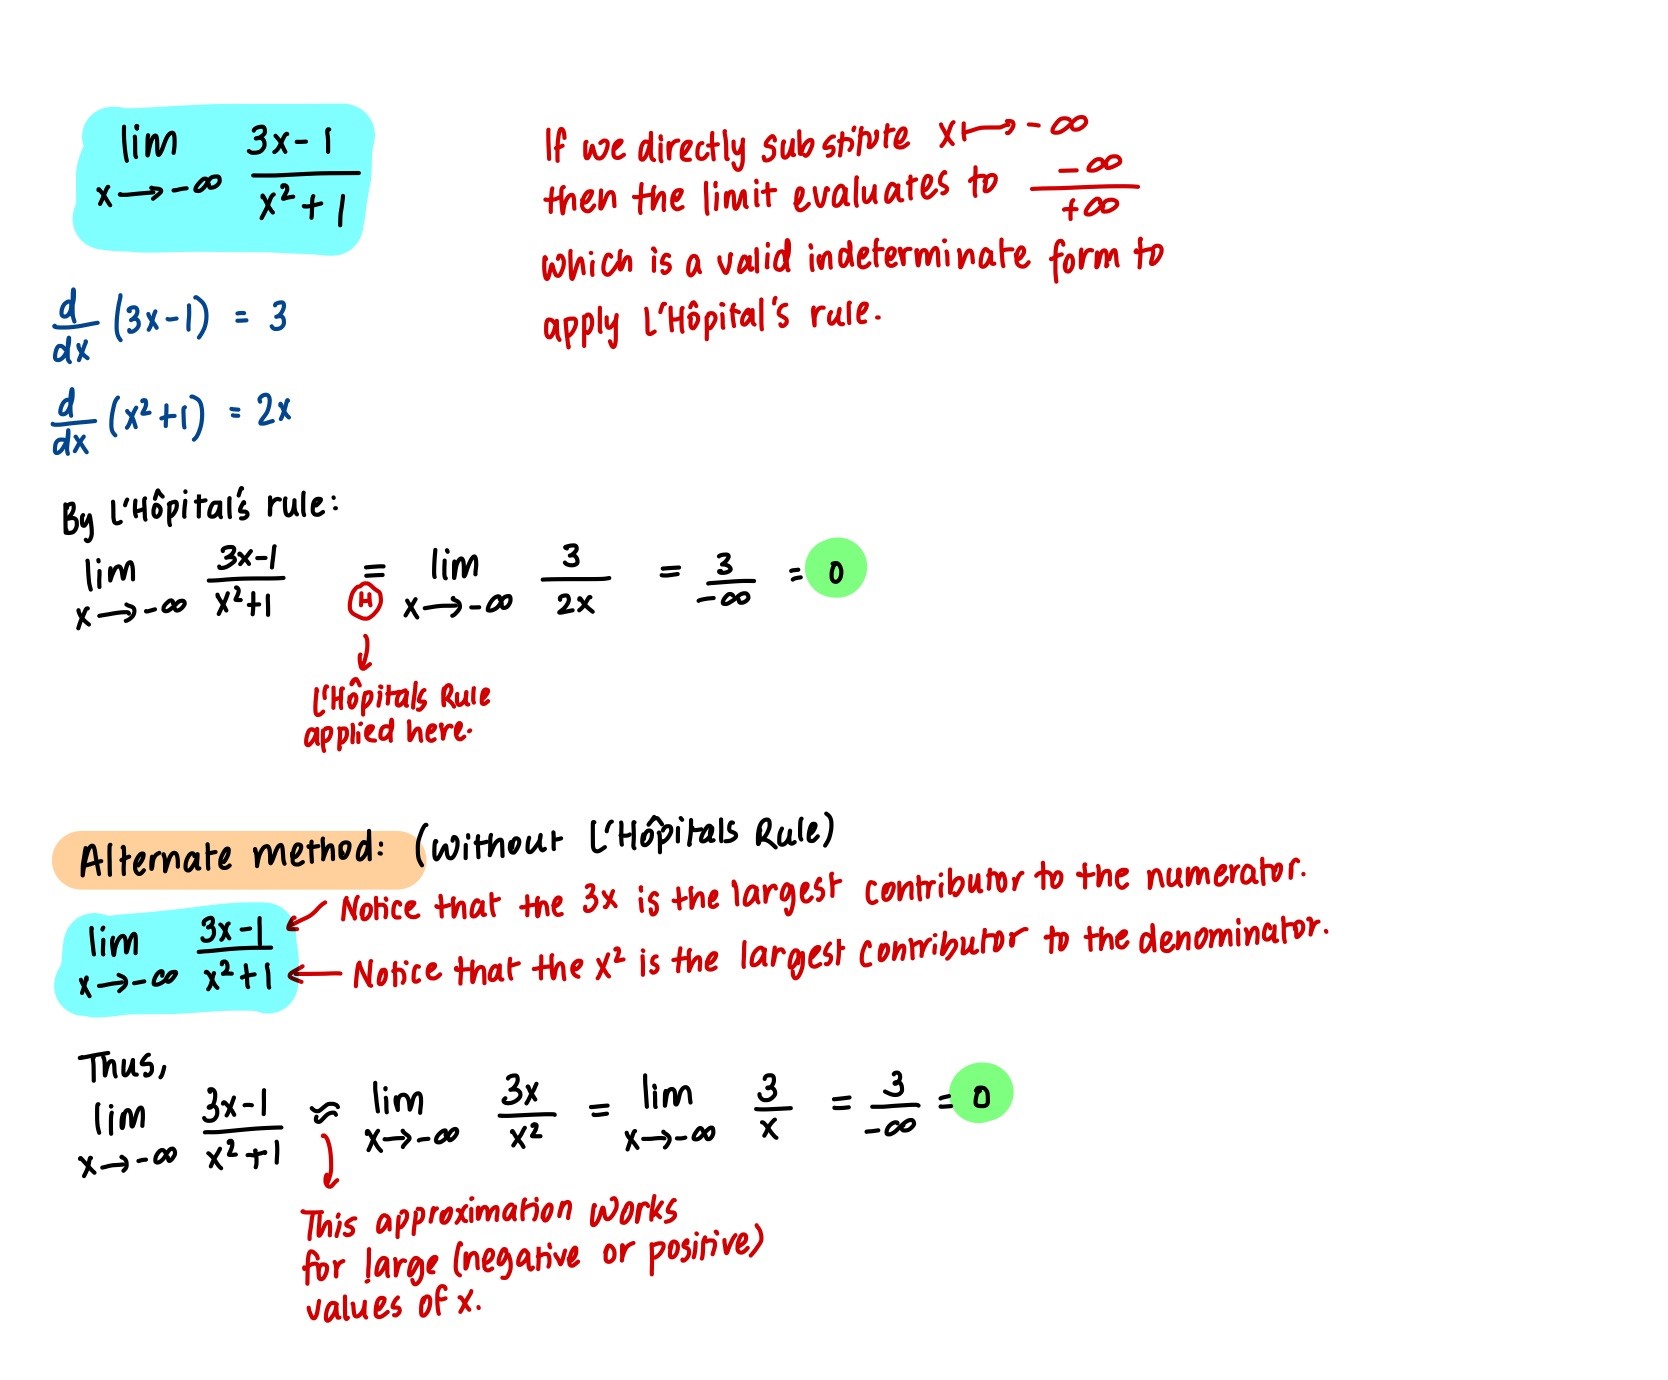 lim x→-∞ (3x-1)/(x²+1)
If we directly substitute x↦-∞
then the limit evaluates to -∞/+∞
which is a valid indeterminate form to
apply L'Hôpital's rule.
d/dx (3x-1) = 3
d/dx (x²+1) = 2x
By L'Hôpital's rule:
lim x→-∞ (3x-1)/(x²+1) =Ⓗ lim x→-∞ 3/2x = 3/-∞ = 0
L'Hôpitals Rule
applied here.
Alternate method: (without L'Hôpitals Rule)
Notice that the 3x is the largest contributor to the numerator.
lim x→-∞ (3x-1)/(x²+1)
Notice that the x² is the largest contributor to the denominator.
Thus,
lim x→-∞ (3x-1)/(x²+1) ≈ lim x→-∞ 3x/x² = lim x→-∞ 3/x = 3/-∞ = 0
This approximation works
for large (negative or positive)
values of x.